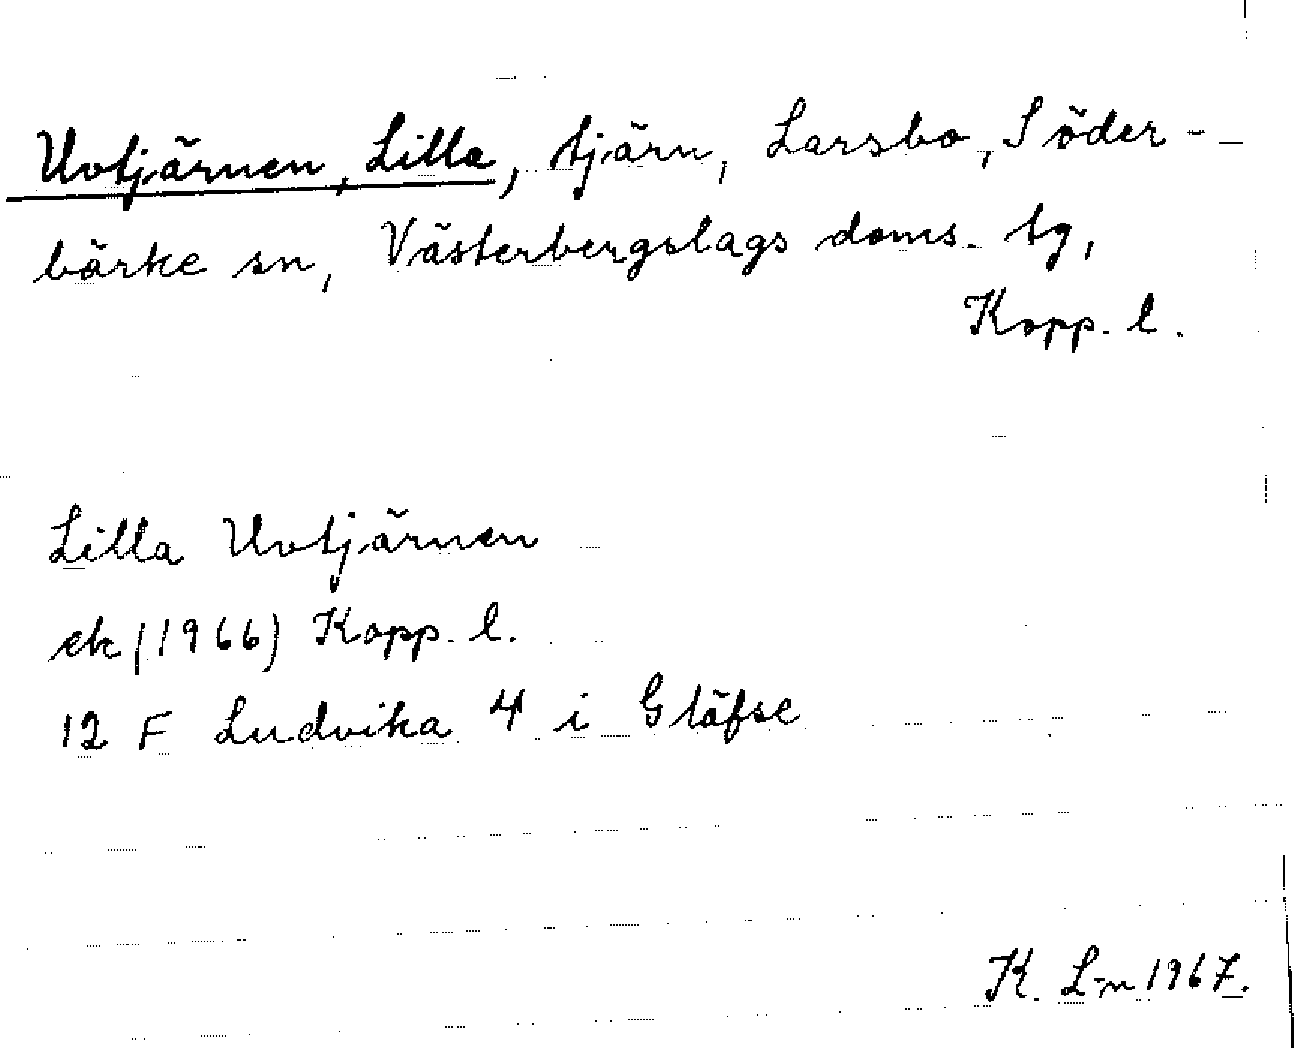 Uvtjärnen, Lilla, tjärn, Larsbo, Söder-
bärke sn, Västerbergslags doms. tg,
Kopp. l.
Lilla Uvtjärnen
ek (1966) Kopp. l.
12 F Ludvika 4 i Gläfse
K. L-n 1967.